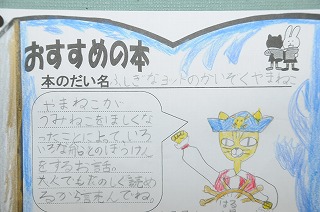 おすすめの本
本のだい名 ふしぎなヨットのかいぞくやまねこ
やまねこが
うみねこをほしくな
ったことによって、いろ
いろな船とのぼうけん
をするお話
大人でもたのしく読め
るから読んでね。
はる